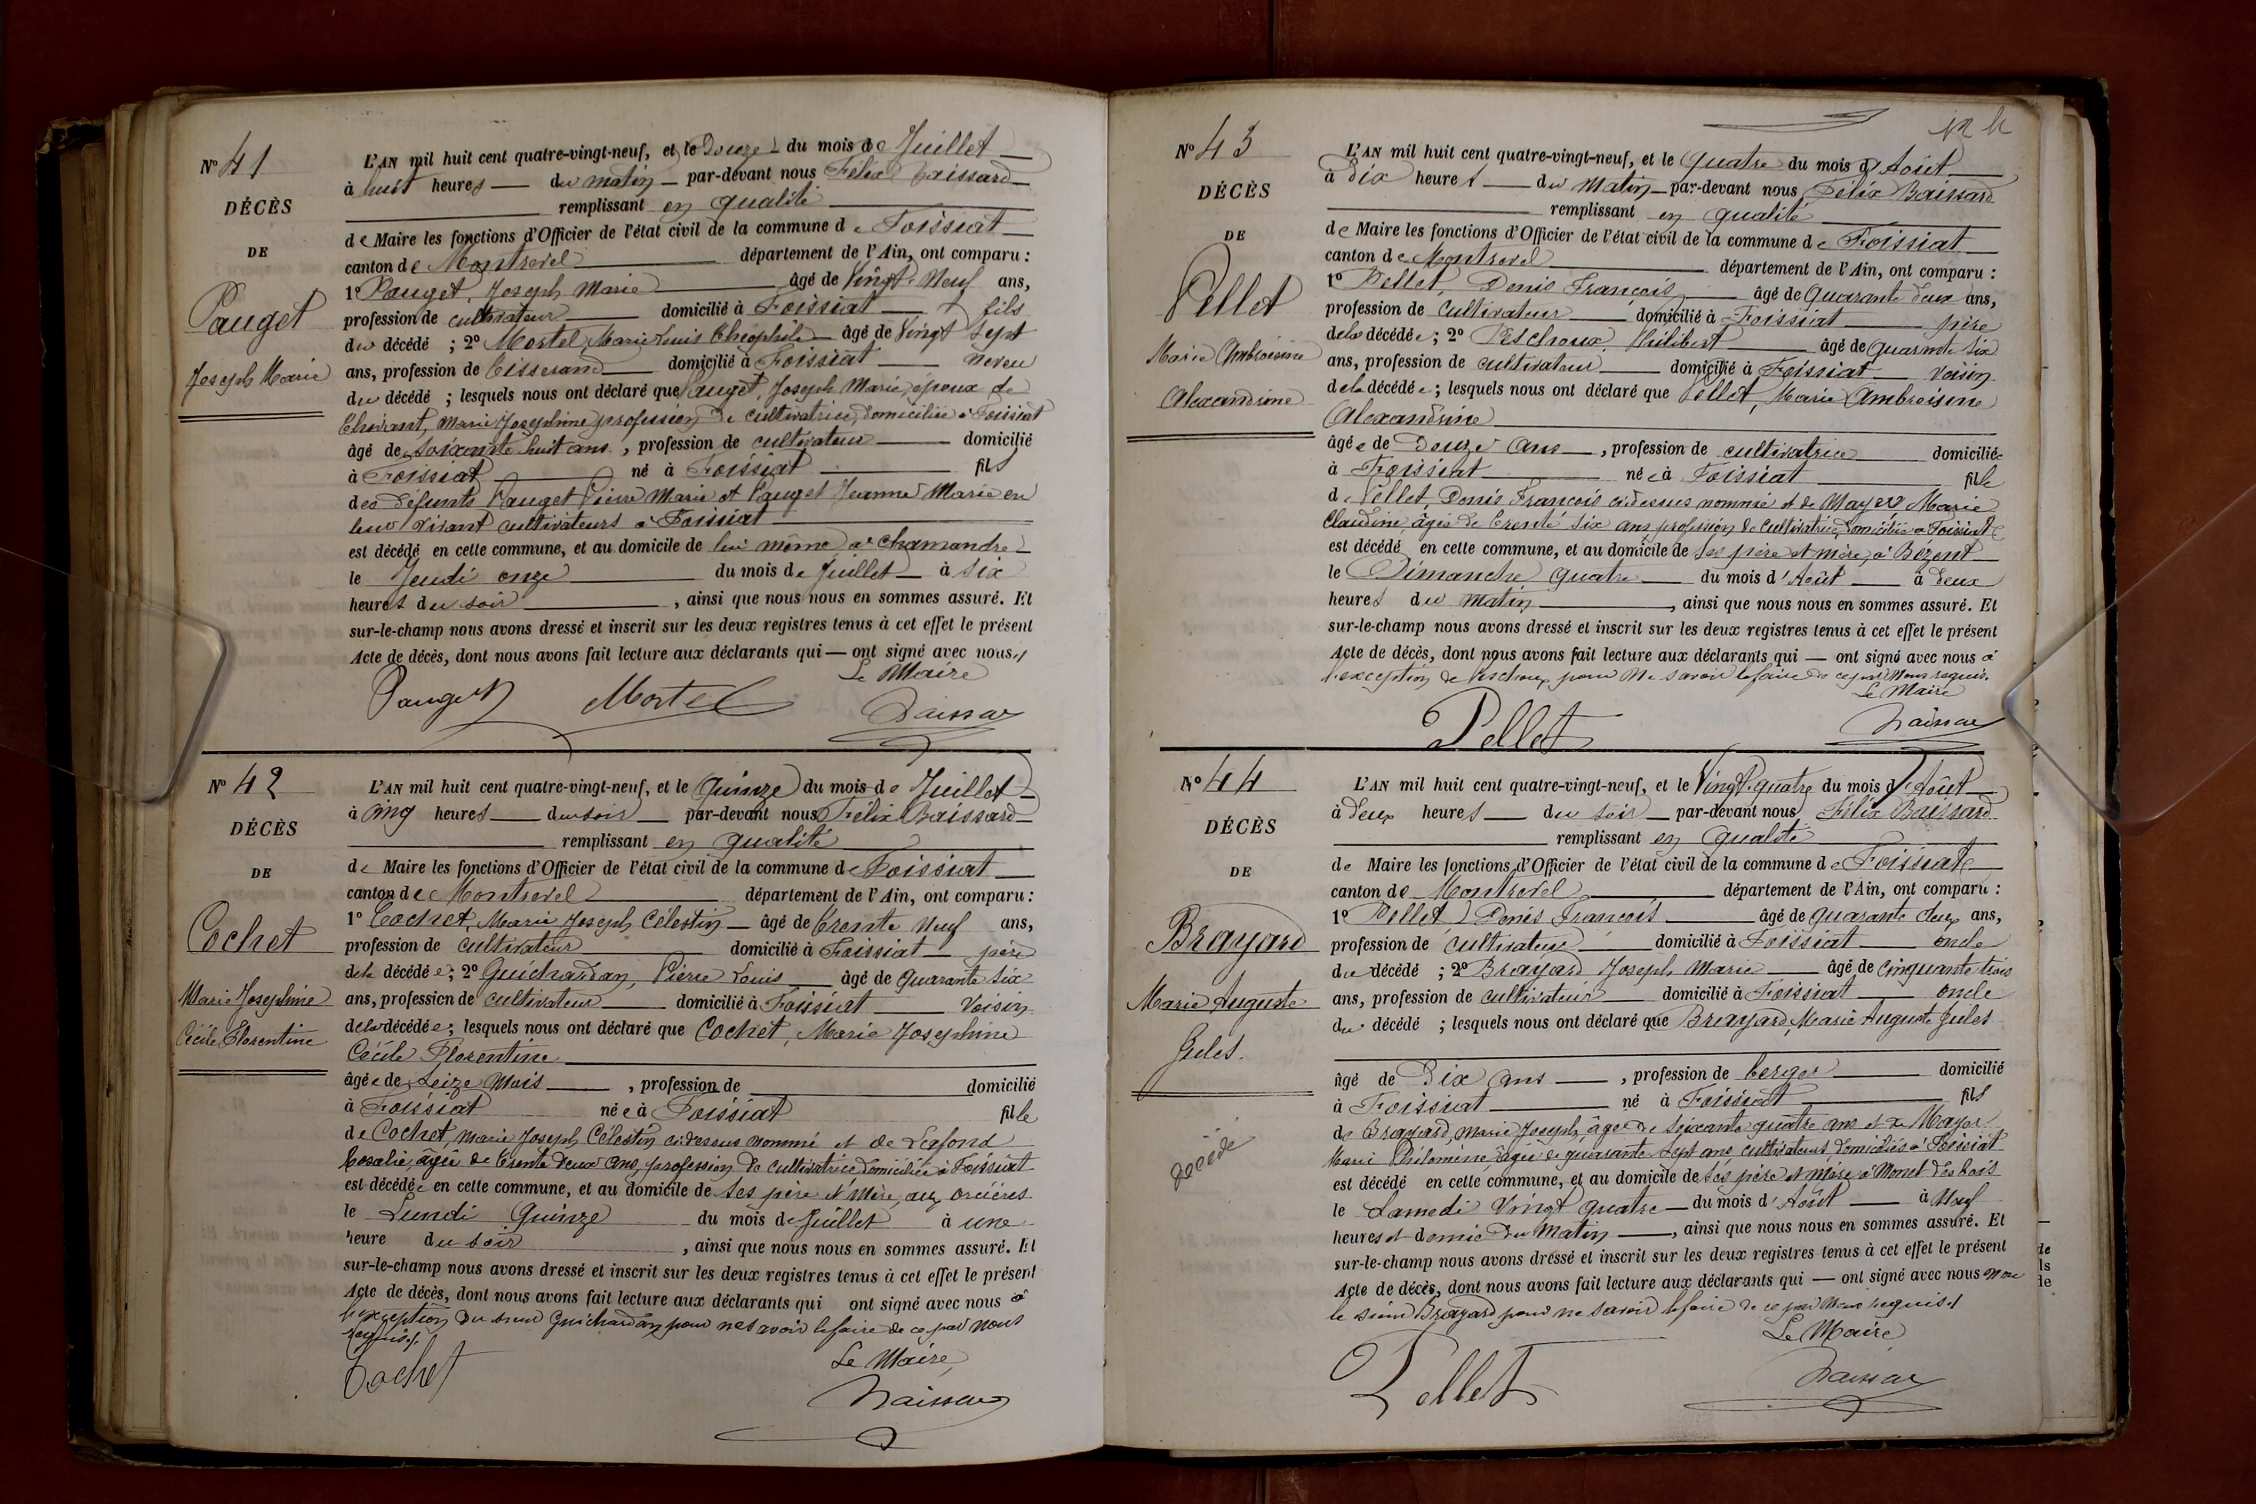 N° 41
DÉCÈS
DE
Pauget
Joseph Marie
L'AN mil huit cent quatre-vingt-neuf, et le Douze du mois de Juillet
à huit heures du matin par-devant nous Félix Baissard
remplissant en qualité
de Maire les fonctions d'Officier de l'état civil de la commune de Foissiat
canton de Montrevel département de l'Ain, ont comparu :
1° Pauget, Joseph Marie âgé de Vingt Neuf ans,
profession de cultivateur domicilié à Foissiat fils
du décédé ; 2° Mortel, Marie Louis Théophile âgé de Vingt Sept
ans, profession de Tisserand domicilié à Foissiat neveu
du décédé ; lesquels nous ont déclaré que Pauget, Joseph Marie, époux de
Marie Joséphine profession de cultivatrice, domiciliée à Foissiat
âgé de soixante huit ans, profession de cultivateur domicilié
à Foissiat né à Foissiat fils
des défunts Pauget Pierre Marie et Pauget Jeanne Marie en
leur vivant cultivateurs à Foissiat
est décédé en cette commune, et au domicile de lui même à Chamandre
le Jeudi onze du mois de Juillet à six
heures du soir, ainsi que nous nous en sommes assuré. Et
sur-le-champ nous avons dressé et inscrit sur les deux registres tenus à cet effet le présent
Acte de décès, dont nous avons fait lecture aux déclarants qui — ont signé avec nous
Le Maire
Pauget Mortel Baissard
N° 42
DÉCÈS
DE
Cochet
Marie Josephine
Cécile Florentine
L'AN mil huit cent quatre-vingt-neuf, et le Quinze du mois de Juillet
à cinq heures du soir par-devant nous Félix Baissard
remplissant en qualité
de Maire les fonctions d'Officier de l'état civil de la commune de Foissiat
canton de Montrevel département de l'Ain, ont comparu :
1° Cochet, Marie Joseph Célestin âgé de trente Neuf ans,
profession de cultivateur domicilié à Foissiat père
de la décédée ; 2° Guichardan, Pierre Louis âgé de Quarante six
ans, profession de cultivateur domicilié à Foissiat Voisin
de la décédée ; lesquels nous ont déclaré que Cochet, Marie Josephine
Cécile Florentine
âgée de seize Mois, profession de domicilié
à Foissiat née à Foissiat fille
de Cochet, Marie Joseph Célestin ci dessus nommé et de Lafond
Rosalie, âgée de trente deux ans, profession de cultivatrice domiciliée à Foissiat
est décédée en cette commune, et au domicile de ses père et mère, aux
le Lundi Quinze du mois de Juillet à une
heure du soir, ainsi que nous nous en sommes assuré. Et
sur-le-champ nous avons dressé et inscrit sur les deux registres tenus à cet effet le présent
Acte de décès, dont nous avons fait lecture aux déclarants qui ont signé avec nous à
l'exception du sieur Guichardan pour ne savoir le faire de ce par nous
requis.
Le Maire,
Cochet Baissard
N° 43
DÉCÈS
DE
Pellet
Marie Ambroisine
Alexandrine
L'AN mil huit cent quatre-vingt-neuf, et le quatre du mois d'Août
à dix heures du Matin par-devant nous Félix Baissard
remplissant en qualité
de Maire les fonctions d'Officier de l'état civil de la commune de Foissiat
canton de Montrevel département de l'Ain, ont comparu :
1° Pellet, Denis François âgé de Quarante deux ans,
profession de Cultivateur domicilié à Foissiat père
de la décédée ; 2° Peschoux, Philibert âgé de quarante six
ans, profession de cultivateur domicilié à Foissiat Voisin
de la décédée ; lesquels nous ont déclaré que Pellet, Marie Ambroisine
Alexandrine
âgée de Douze ans, profession de cultivatrice domiciliée
à Foissiat née à Foissiat fille
de Pellet, Denis François ci dessus nommé et de Mayer Marie
Claudine âgée de trente six ans, profession de cultivatrice, domiciliée à Foissiat
est décédé en cette commune, et au domicile de ses père et mère, à Bézent
le Dimanche quatre du mois d'Août à deux
heures du matin, ainsi que nous nous en sommes assuré. Et
sur-le-champ nous avons dressé et inscrit sur les deux registres tenus à cet effet le présent
Acte de décès, dont nous avons fait lecture aux déclarants qui — ont signé avec nous à
l'exception de Peschoux pour Ne savoir le faire de ce par Nous requis.
Le Maire
Pellet Baissard
N° 44
DÉCÈS
DE
Brayard
Marie Auguste
Jules.
décédé
L'AN mil huit cent quatre-vingt-neuf, et le Vingt quatre du mois d'Août
à deux heures du soir par-devant nous Félix Baissard
remplissant en qualité
de Maire les fonctions d'Officier de l'état civil de la commune de Foissiat
canton de Montrevel département de l'Ain, ont comparu :
1° Pellet, Denis François âgé de quarante deux ans,
profession de cultivateur domicilié à Foissiat oncle
du décédé ; 2° Brayard Joseph Marie âgé de cinquante trois
ans, profession de cultivateur domicilié à Foissiat oncle
du décédé ; lesquels nous ont déclaré que Brayard, Marie Auguste Jules
âgé de Dix ans, profession de berger domicilié
à Foissiat né à Foissiat fils
de Brayard, Marie Joseph, âgé de soixante quatre ans et de Mayer
Marie Philomène, âgée de quarante sept ans cultivateurs, domiciliés à Foissiat
est décédé en cette commune, et au domicile de ses père et mère à Monet des bois
le Samedi Vingt quatre du mois d'Août à Neuf
heures et demie du Matin, ainsi que nous nous en sommes assuré. Et
sur-le-champ nous avons dressé et inscrit sur les deux registres tenus à cet effet le présent
Acte de décès, dont nous avons fait lecture aux déclarants qui — ont signé avec nous non
le sieur Brayard pour ne savoir le faire de ce par Nous requis.
Le Maire
Pellet Baissard